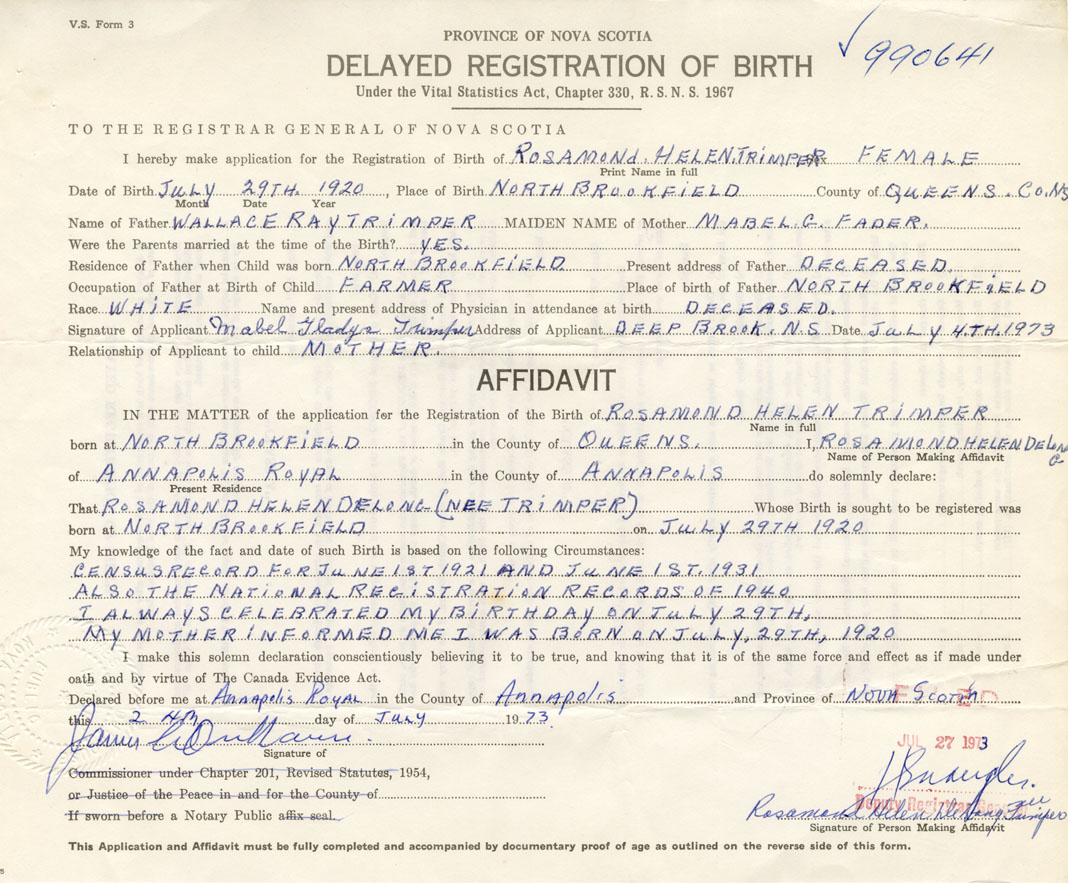 V.S. Form 3
990641
PROVINCE OF NOVA SCOTIA
DELAYED REGISTRATION OF BIRTH
Under the Vital Statistics Act, Chapter 330, R.S.N.S. 1967
TO THE REGISTRAR GENERAL OF NOVA SCOTIA
I hereby make application for the Registration of Birth of ROSAMOND HELEN TRIMPER FEMALE
Print Name in full
Date of Birth JULY 29TH. 1920, Place of Birth NORTH BROOKFIELD County of QUEENS. CO. NS
Month Date Year
Name of Father WALLACE RAY TRIMPER MAIDEN NAME of Mother MABEL. G. FADER.
Were the Parents married at the time of the Birth? YES.
Residence of Father when Child was born NORTH BROOKFIELD Present address of Father DECEASED.
Occupation of Father at Birth of Child FARMER Place of birth of Father NORTH BROOKFIELD
Race WHITE Name and present address of Physician in attendance at birth DECEASED.
Signature of Applicant Mabel Gladys Trimper Address of Applicant DEEP BROOK. N.S Date JULY 4TH. 1973
Relationship of Applicant to child MOTHER.
AFFIDAVIT
IN THE MATTER of the application for the Registration of the Birth of ROSAMOND HELEN TRIMPER
Name in full
born at NORTH BROOKFIELD in the County of QUEENS. I, ROSAMOND HELEN DELONG
Name of Person Making Affidavit
of ANNAPOLIS ROYAL in the County of ANNAPOLIS do solemnly declare:
Present Residence
That ROSAMOND HELEN DELONG (NEE TRIMPER) Whose Birth is sought to be registered was
born at NORTH BROOKFIELD on JULY 29TH 1920
My knowledge of the fact and date of such Birth is based on the following Circumstances:
CENSUS RECORD FOR JUNE 1ST 1921 AND JUNE 1ST. 1931
ALSO THE NATIONAL REGISTRATION RECORDS OF 1940
I ALWAYS CELEBRATED MY BIRTHDAY ON JULY 29TH,
MY MOTHER INFORMED ME I WAS BORN ON JULY, 29TH, 1920
I make this solemn declaration conscientiously believing it to be true, and knowing that it is of the same force and effect as if made under
oath and by virtue of The Canada Evidence Act.
Declared before me at Annapolis Royal in the County of Annapolis and Province of Nova Scotia
this day of July 1973
JUL 27 1973
Signature of
Commissioner under Chapter 201, Revised Statutes, 1954,
or Justice of the Peace in and for the County of
Deputy Registrar General
If sworn before a Notary Public affix seal.
Rosamond Helen DeLong nee Trimper
Signature of Person Making Affidavit
This Application and Affidavit must be fully completed and accompanied by documentary proof of age as outlined on the reverse side of this form.